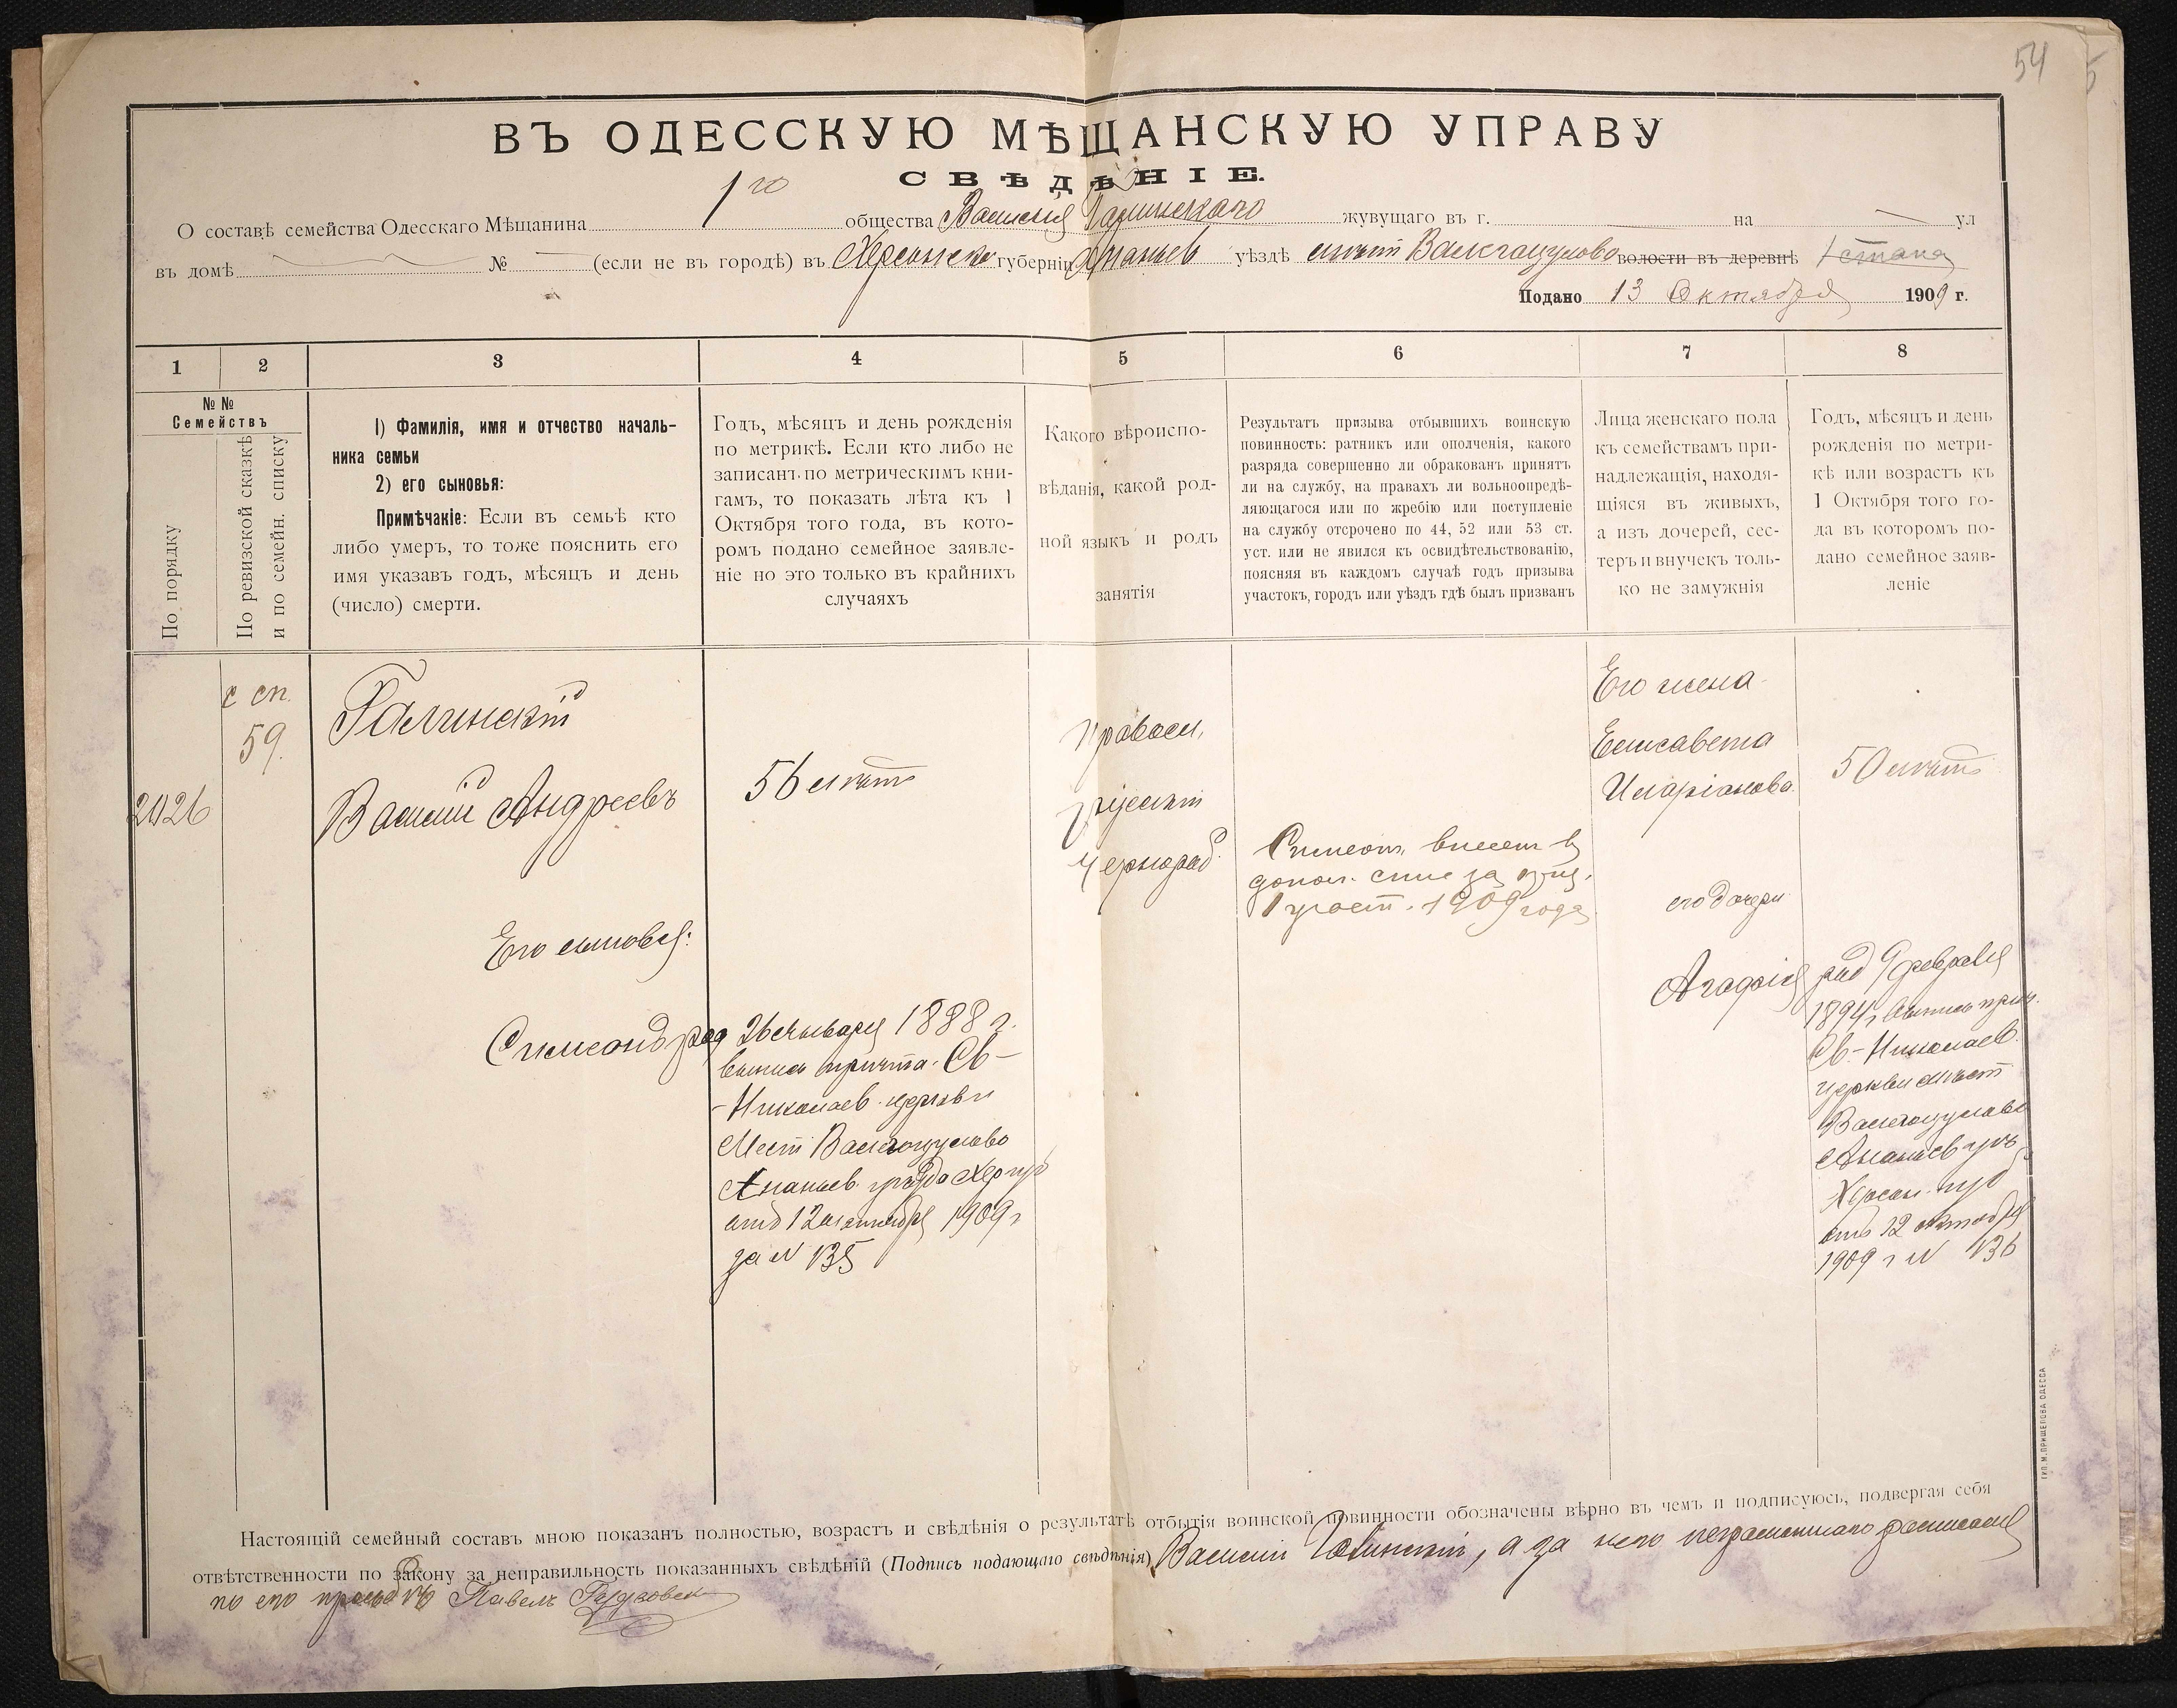 54
ВЪ ОДЕССКУЮ МѢЩАНСКУЮ УПРАВУ
СВѢДѢНІЕ.
О составѣ семейства Одесскаго Мѣщанина 1го общества Василія Галинскаго жувущаго въ г. — на — ул
въ домѣ — № — (если не въ городѣ) въ Херсонско. губерніи Ананьев уѣздѣ мѣст Валегоцулово волости въ деревнѣ 1 стана
Подано 13 Октября 1909 г.
1 2 3 4 5 6 7 8
№ №
Семействъ
По порядку
По ревизской сказкѣ
и по семейн. списку
1) Фамилія, имя и отчество началь-
ника семьи
2) его сыновья:
Примѣчакіе: Если въ семьѣ кто
либо умеръ, то тоже пояснить его
имя указавъ годъ, мѣсяцъ и день
(число) смерти.
Годъ, мѣсяцъ и день рожденія
по метрикѣ. Если кто либо не
записанъ по метрическимъ кни-
гамъ, то показать лѣта къ 1
Октября того года, въ кото-
ромъ подано семейное заявле-
ніе но это только въ крайнихъ
случаяхъ
Какого вѣроиспо-
вѣданія, какой род-
ной языкъ и родъ
занятія
Результатъ призыва отбывшихъ воинскую
повинность: ратникъ или ополченія, какого
разряда совершенно ли обракованъ принятъ
ли на службу, на правахъ ли вольноопредѣ-
ляющагося или по жребію или поступленіе
на службу отсрочено по 44, 52 или 53 ст.
уст. или не явился къ освидѣтельствованію,
поясняя въ каждомъ случаѣ годъ призыва
участокъ, городъ или уѣздъ гдѣ былъ призванъ
Лица женскаго пола
къ семействамъ при-
надлежащія, находя-
щіяся въ живыхъ,
а изъ дочерей, сес-
теръ и внучекъ толь-
ко не замужнія
Годъ, мѣсяцъ и день
рожденія по метри-
кѣ или возрастъ къ
1 Октября того го-
да въ которомъ по-
дано семейное заяв-
леніе
с сп.
59.
2426
Галинскій
Василій Андреевъ
Его сыновья:
Симеонъ род
56 лѣтъ
26 Января 1888 г.
выпись причта Св-
-Николаев церкви
Мест Валегоцулово
Ананьев. уѣзда Хер губ
отъ 12 октября 1909 г
за N 135
Правосл.
русскій
Чернораб.
Симеонъ внесен въ
допол. спис за приз.
1 участ. 1909 года
Его жена
Елисавета
Иларіонова
его дочери
Агафія
50 лѣтъ
род 9 февраля
1894 г выпись прич.
Св-Николаев.
церкви мѣст
Валегоцулово
Ананьев уѣз
Херсон. губ
отъ 12 октября
1909 г N 136
Настоящій семейный составъ мною показанъ полностью, возрастъ и свѣдѣнія о результатѣ отбытія воинской повинности обозначены вѣрно въ чемъ и подписуюсь, подвергая себя
отвѣтственности по закону за неправильность показанныхъ свѣдѣній (Подпись подающаго свѣдѣнія) Василій Галинскій, а за него неграмотнаго росписался
по его просьбѣ Павелъ
ТИП. М. ПРИЩЕПОВА ОДЕССА